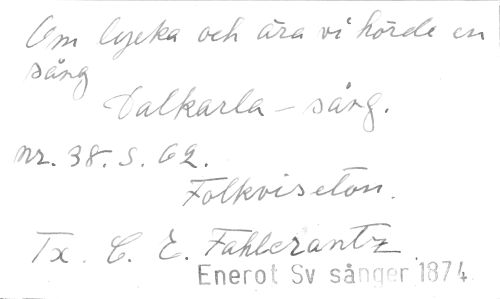 Om lycka och ära vi hörde en
sång
Dalkarla - sång.
nr. 38. s. 62.
Folkviseton.
Tx. C. E. Fahlcrantz.
Enerot Sv sånger 1874